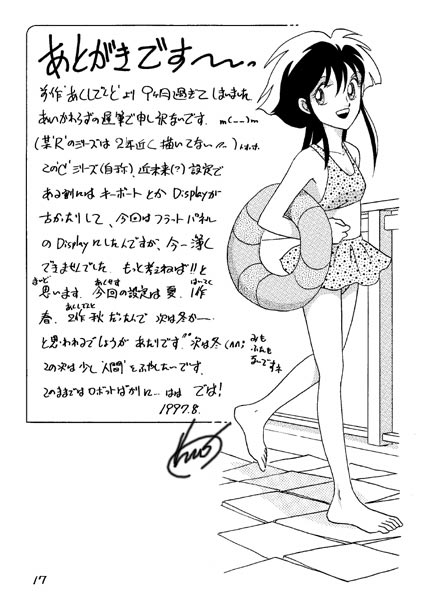 あとがきです〜〜..
前作"あくしでんと"より 9ヶ月過ぎてしまいました
あいかわらずの遅筆で申し訳ないです. m(--)m
(某"R"のシリーズは 2年近く描いてない〃) トホホ.
この"C"シリーズ(自称). 近未来(?) 設定で
ある割には キーボードとか Displayが
古かったりして、今回は フラットパネル
の Displayにしたんですが、今一薄く
できませんでした. もっと考えねば!!と
思います. 今回の設定は 夏. 1作
春. 2作 秋 だったんで 次は冬か――
と思われるでしょうが あたりです〃 次は冬 (∩∩;
この次は少し"人間"をふやしたいです.
このままではロボットばかりに… はは では!
1997.8.
17